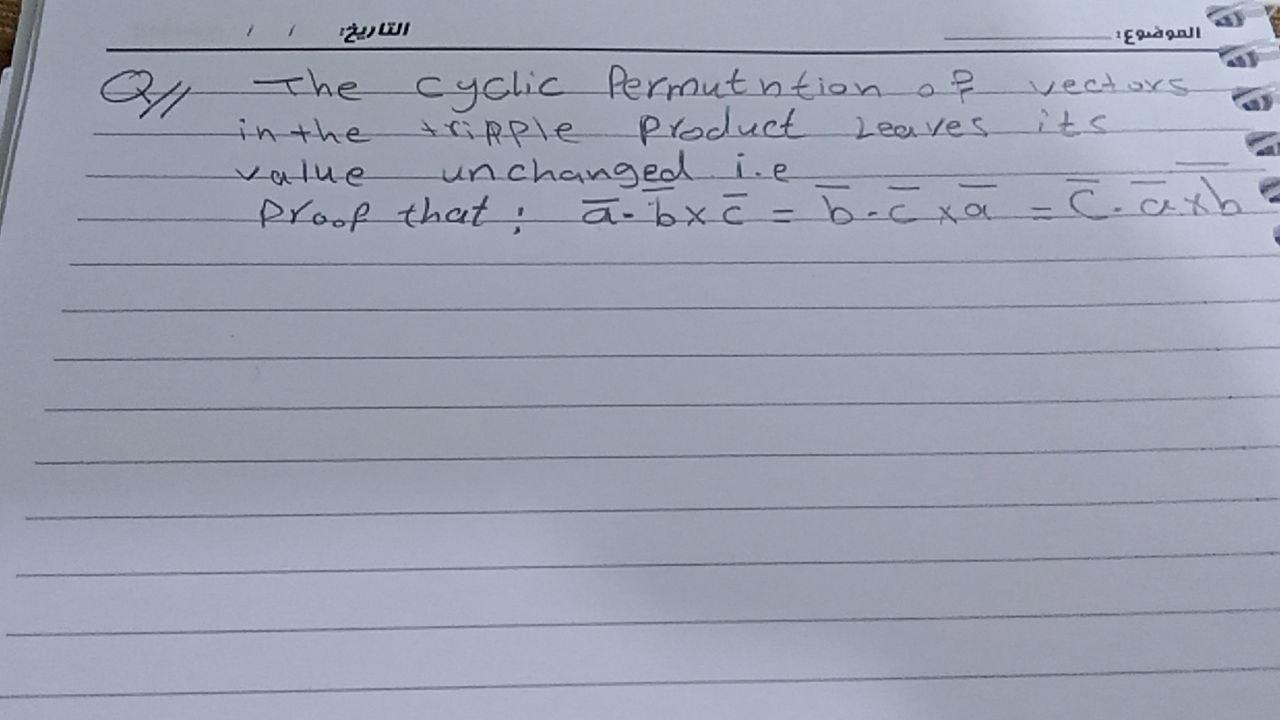 الموضوع: التاريخ: / /
Q// The cyclic Permutntion of vectors
in the tripple product Leaves its
value unchanged i.e
Proof that: a̅ · b̅ × c̅ = b̅ · c̅ × a̅ = c̅ · a̅ × b̅